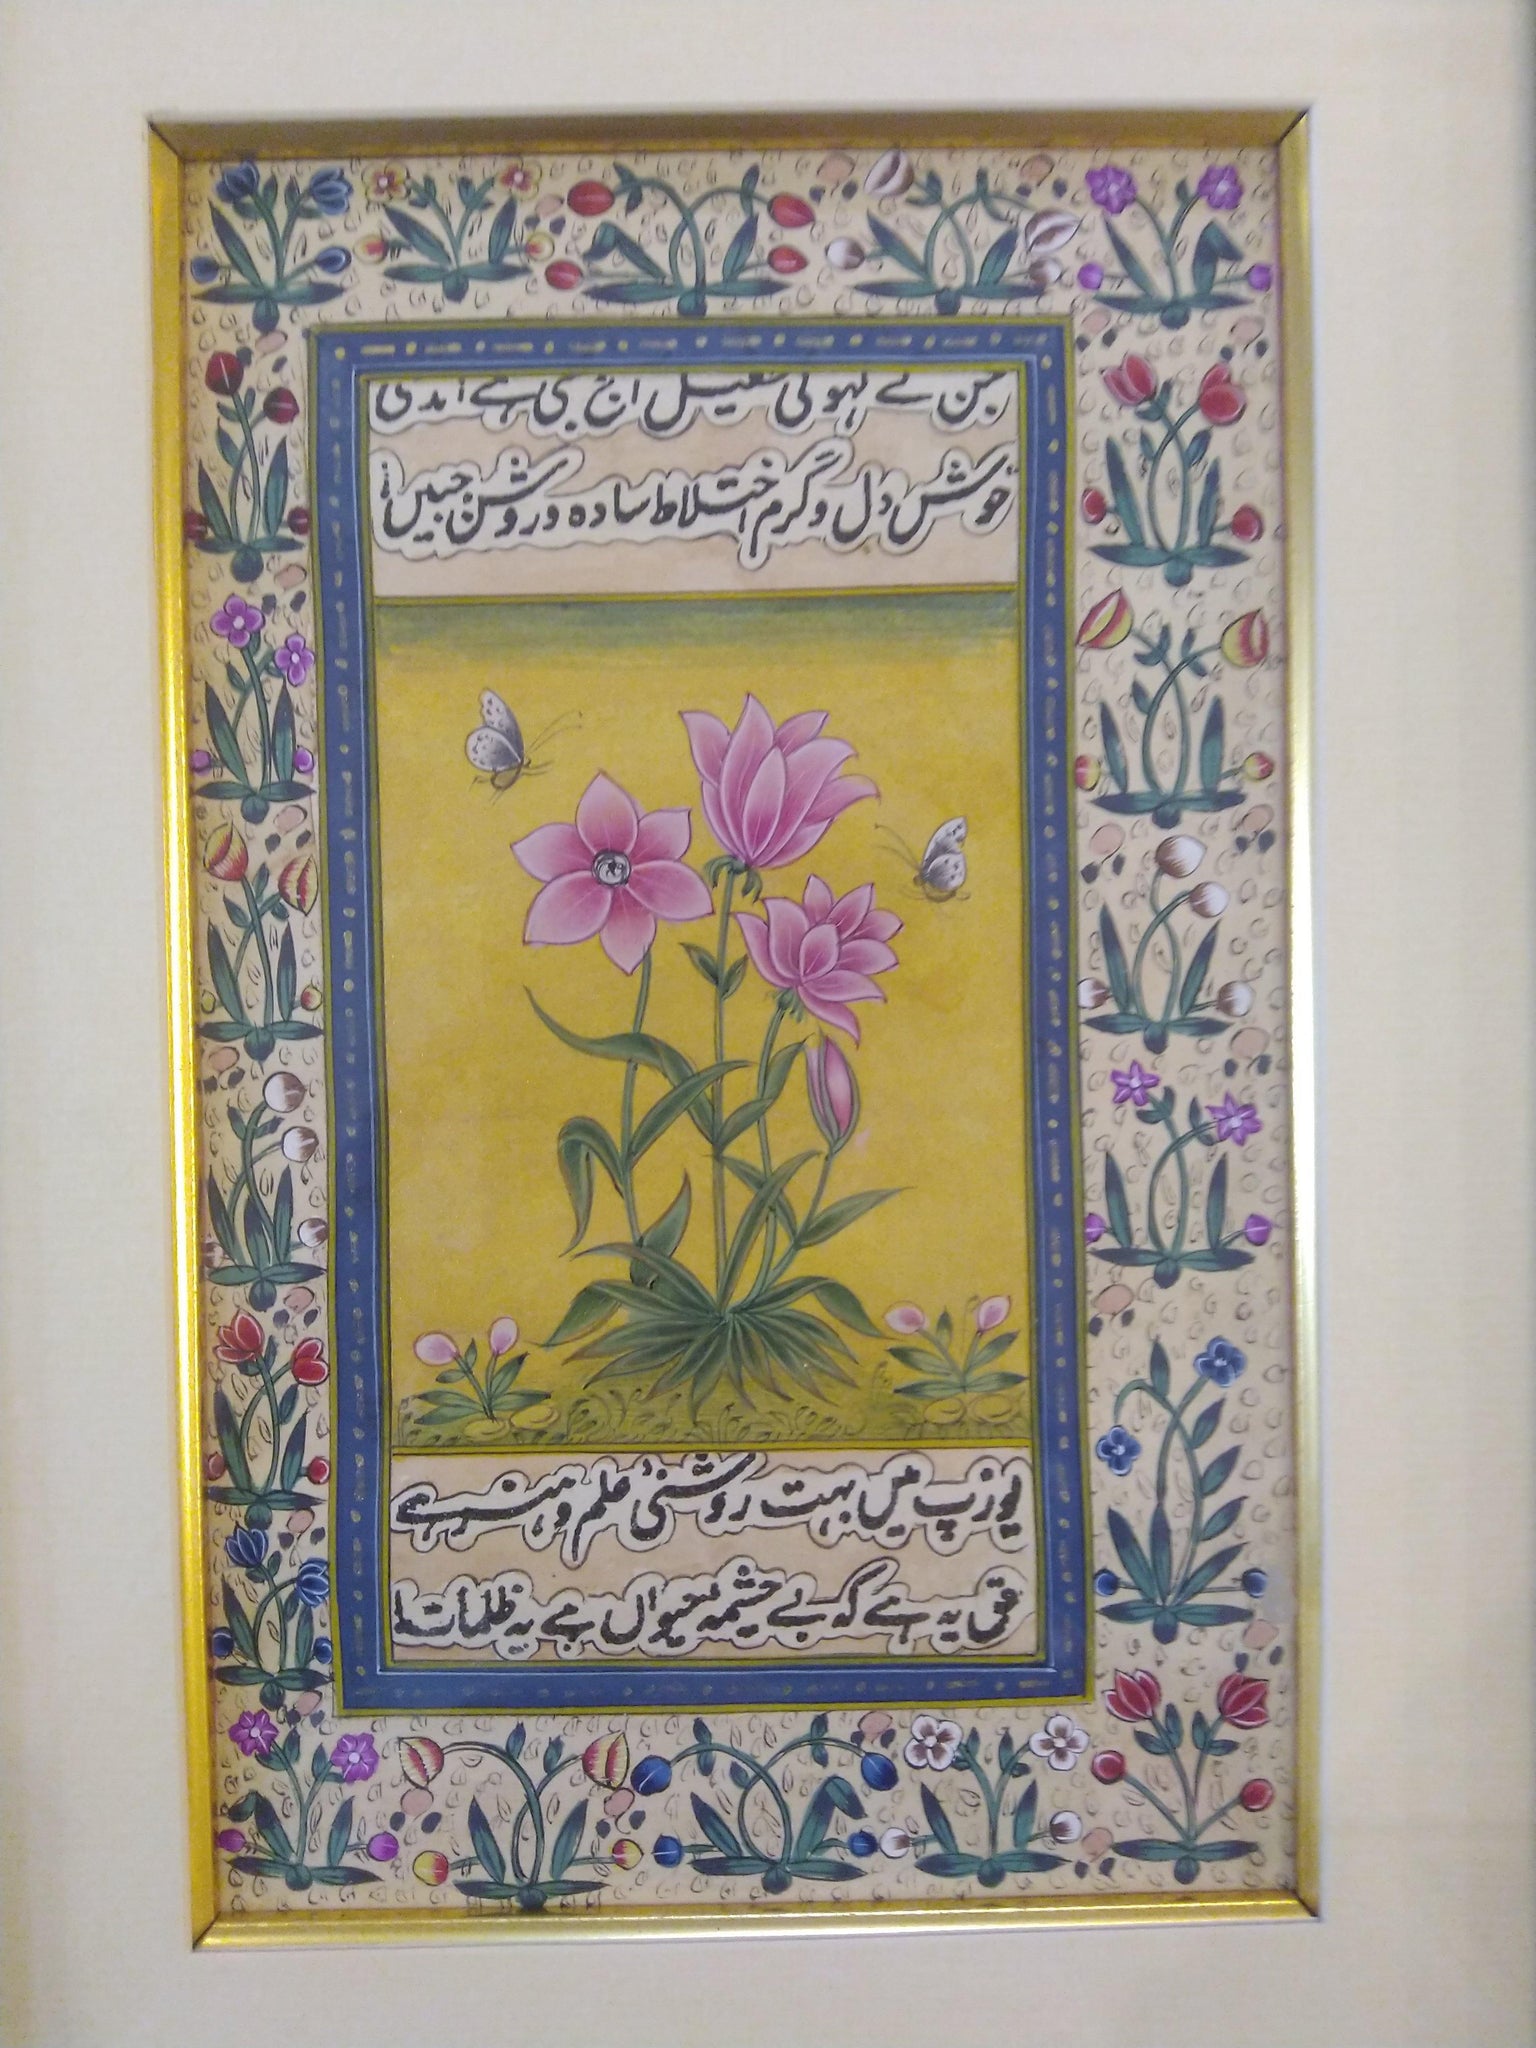 جن کے لہو کی طفیل آج بھی ہے اندلسی
خوش دل و گرم اختلاط سادہ و روشن جبیں
یورپ میں بہت روشنیٔ علم و ہنر ہے
حق یہ ہے کہ بے چشمہ حیواں ہے یہ ظلمات